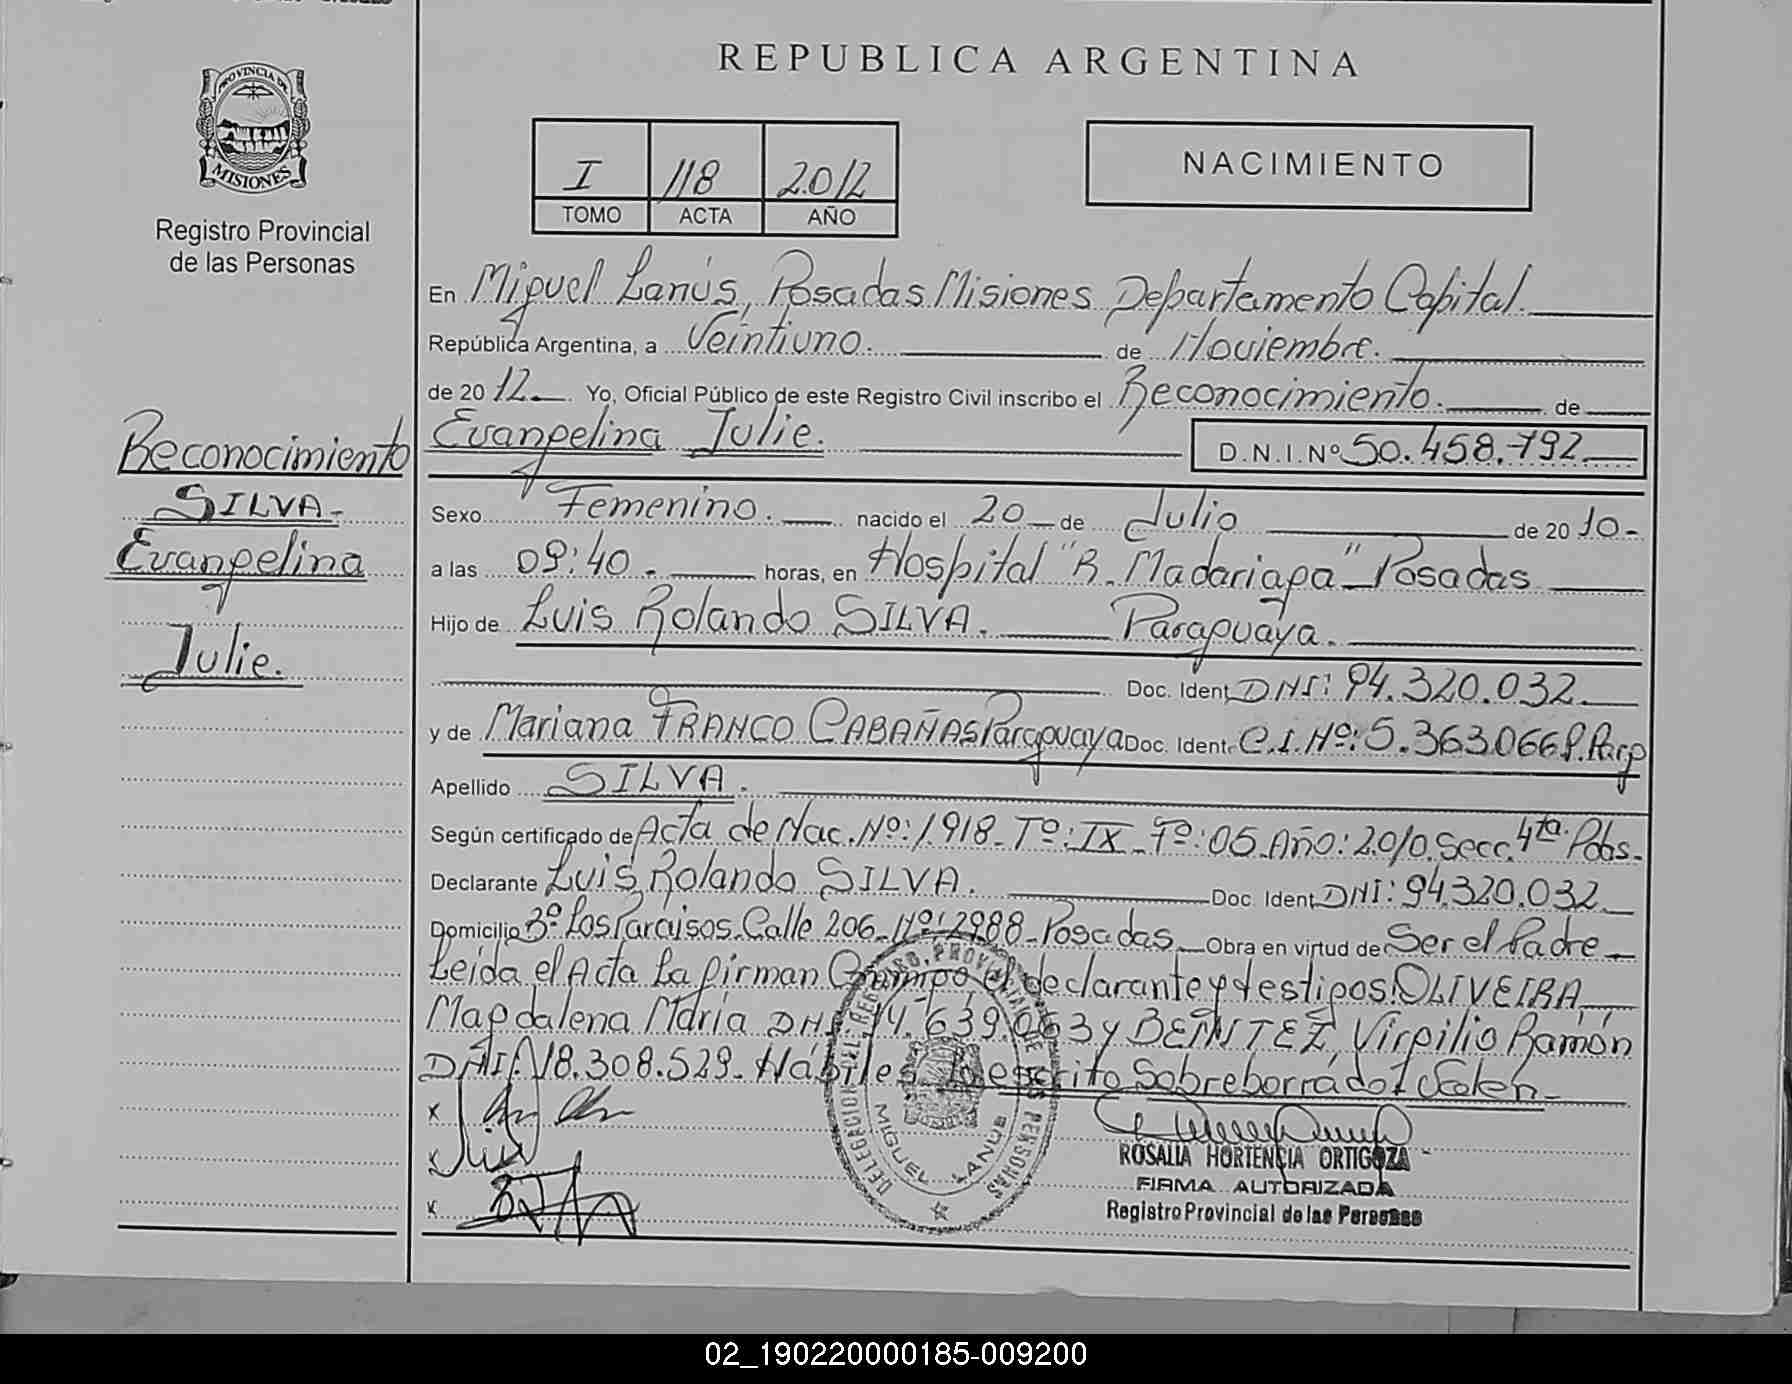 REPUBLICA ARGENTINA
PROVINCIA DE
MISIONES
Registro Provincial
de las Personas
I 118 2.012
TOMO ACTA AÑO
NACIMIENTO
En Miguel Lanús, Posadas Misiones Departamento Capital.
República Argentina, a Veintiuno. de Noviembre.
de 2012 Yo, Oficial Público de este Registro Civil inscribo el Reconocimiento. de
Evangelina Julie. D.N.I.Nº 50.458.792
Reconocimiento
SILVA-
Evangelina
Julie.
Sexo Femenino. nacido el 20 de Julio de 2010-
a las 09:40. horas, en Hospital "R. Madariaga" Posadas
Hijo de Luis Rolando SILVA. Paraguaya.
Doc. Ident. DNI: 94.320.032.
y de Mariana FRANCO CABAÑAS Paraguaya Doc. Ident. C.I.Nº: 5.363.066 P. Parg
Apellido SILVA.
Según certificado de Acta de Nac. Nº: 1.918- Tº: IX- Fº: 05. Año: 2.010. Secc. 4ta. Pdas-
Declarante Luis Rolando SILVA. Doc. Ident. DNI: 94.320.032
Domicilio Bº Los Paraisos. Calle 206- Nº: 2988- Posadas. Obra en virtud de Ser el Padre
Leída el Acta La firman Conmigo el declarante y testigos: OLIVEIRA,
Magdalena María DNI: 14.639.063 y BENITEZ, Virgilio Ramón
DNI: 18.308.529- Hábiles Lo escrito Sobreborrado:
DELEGACION DEL REGISTRO PROVINCIAL DE LAS PERSONAS
MIGUEL LANUS
ROSALIA HORTENCIA ORTIGOZA
FIRMA AUTORIZADA
Registro Provincial de las Personas
02_190220000185-009200